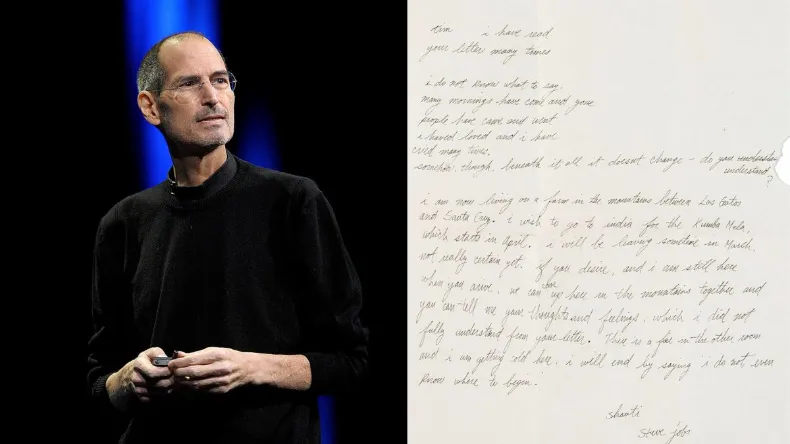 tim i have read
your letter many times
i do not know what to say.
many mornings have come and gone
people have came and went
i haved loved and i have
cried many times.
somehow, though, beneath it all it doesnt change - do you understan
understand?
i am now living on a farm in the mountains between Los Gatos
and Santa Cruz. i wish to go to india for the Kumba Mela,
which starts in April. i will be leaving sometime in March,
not really certain yet. if you desire, and i am still here
when you arive, we can up here in the mountains together and
you can tell me your thoughts and feelings, which i did not
fully understand from your letter. There is a fire in the other room
and i am getting cold here. i will end by saying i do not even
know where to begin.
shanti
steve jobs